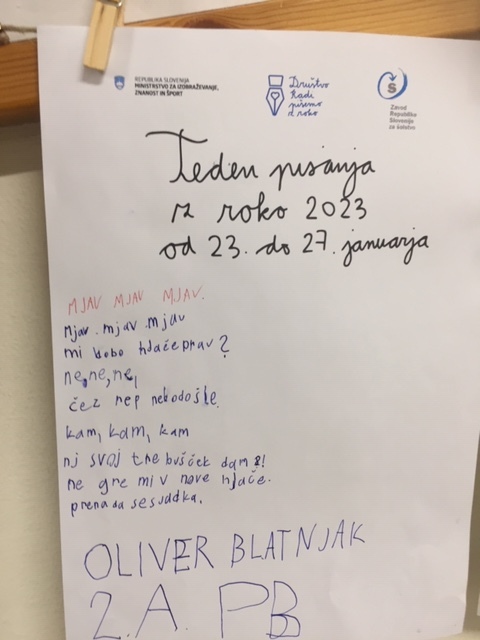 REPUBLIKA SLOVENIJA
MINISTRSTVO ZA IZOBRAŽEVANJE,
ZNANOST IN ŠPORT
Društvo
Radi
pišemo
z roko
Zavod
Republike
Slovenije
za šolstvo
Teden pisanja
z roko 2023
od 23. do 27. januarja
MJAV MJAV MJAV.
Mjav. mjav. mjav
mi bobo hlače prav?
ne, ne, ne,
čez rep nebodošle.
kam, kam, kam
nj svoj trebušček dam?!
ne gre mi v nove hlače.
OLIVER BLATNJAK
2.A. PB